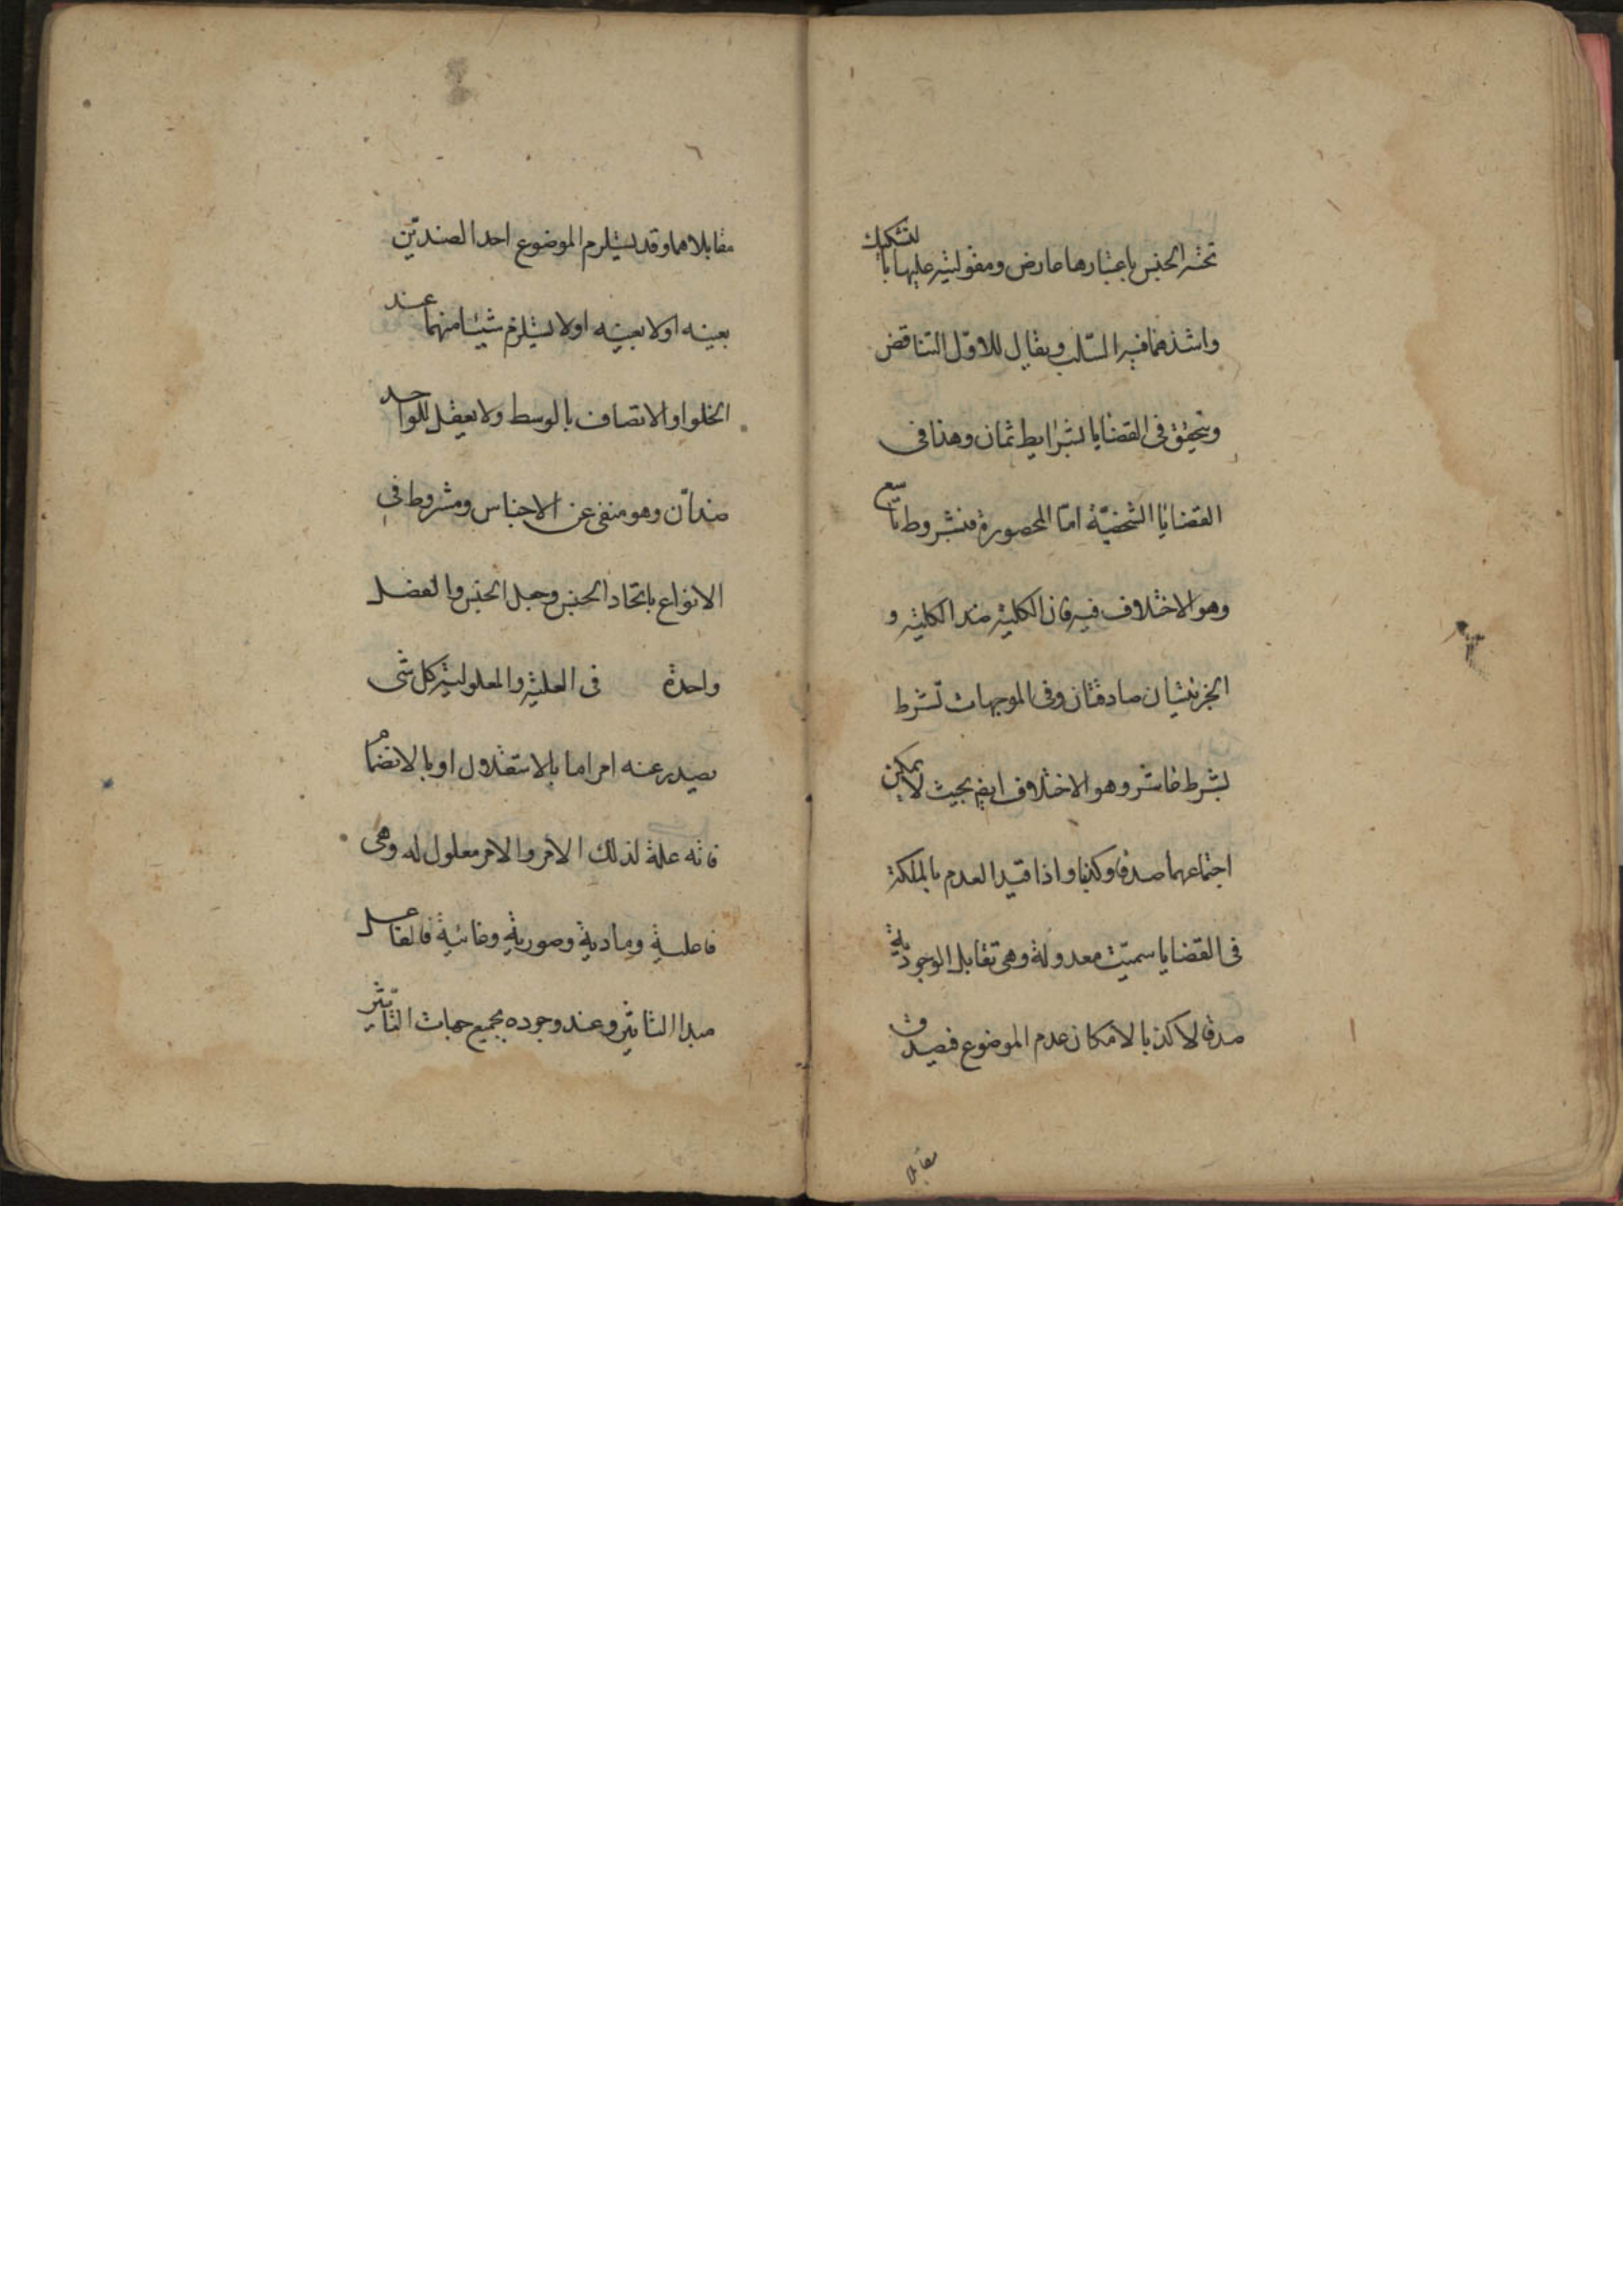 تحته الجنس باعتبارها عارض ومقوليته عليها بالتشكيك
واشدها فيه السّلب ويقال للاوّل التناقض
ويتحقق فى القضايا بشرايط ثمان وهذا فى
القضايا الشخصيّة امّا المحصورة فبشروط تاسع
وهو الاختلاف فيه فان الكلية ضد الكلية و
الجزئيتان صادقتان وفى الموجهات تشرط
بشرط عاشر وهو الاختلاف ايضا بحيث لا يمكن
اجتماعهما صدقا وكذبا واذا قيد العدم بالملكة
فى القضايا سميّت معدولة وهى تقابل الوجودية
صدقا لا كذبا لامكان عدم الموضوع فيصدق
مقابلا
٦
مقابلاهما وقد يستلزم الموضوع احد الضدين
بعينه اولا بعينه اولا يستلزم شيئا منهما عند
الخلو او الاتصاف بالوسط ولا يعقل للواحد
ضدّان وهو منفى عن الاجناس ومشروط فى
الانواع باتحاد الجنس وجعل الجنس والفصل
واحدة فى العلية والمعلولية كل شى
يصدر عنه امر اما بالاستقلال او بالانضمام
فانه علة لذلك الامر والامر معلول له وهى
فاعلية ومادية وصورية وغائية فالفاعل
مبدا التاثير وعند وجوده بجميع جهات التاثير